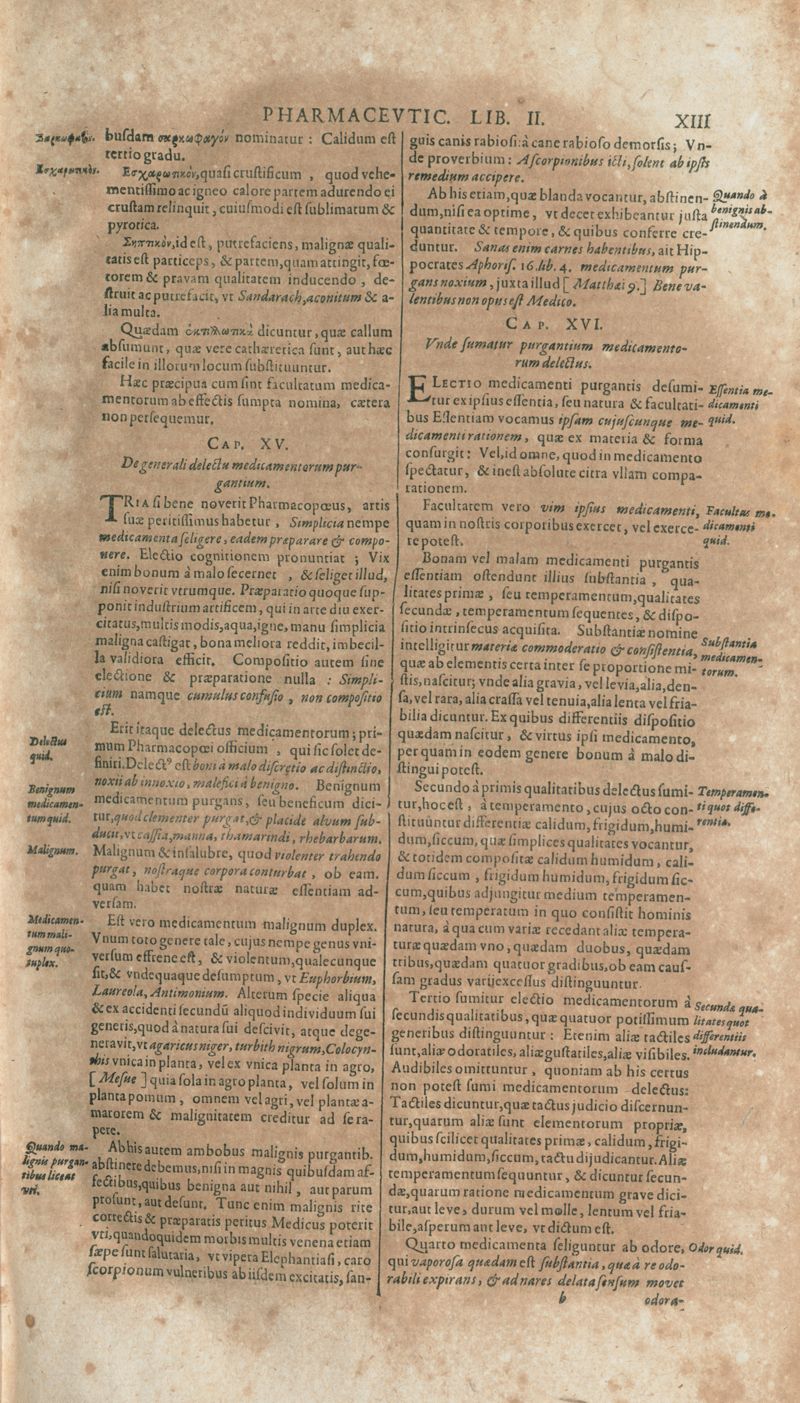 PHARMACEVTIC. LIB. II. XIII
busdam σαρκωφαγὸν nominatur : Calidum est
tertio gradu.
Εσχαρωτικὸν, quasi crustificum , quod vehe-
mentissimo ac igneo calore partem adurendo ei
crustam relinquit, cuiusmodi est sublimatum &
pyrotica.
Σηπτικὸν, id est, putrefaciens, malignæ quali-
tatis est particeps, & partem, quam attingit, fœ-
torem & pravam qualitatem inducendo , de-
struit ac putrefacit, vt Sandarach, aconitum & a-
lia multa.
Quædam dicuntur, quæ callum
absumunt, quæ vere cathæretica sunt, aut hæc
facile in illorum locum substituuntur.
Hæc præcipua cum sint facultatum medica-
mentorum ab effectis sumpta nomina, cætera
non persequemur.
CAP. XV.
De generali delectu medicamentorum pur-
gantium.
TRIA si bene noverit Pharmacopœus, artis
suæ peritissimus habetur , Simplicia nempe
medicamenta seligere, eadem præparare & compo-
nere. Electio cognitionem pronuntiat ; Vix
enim bonum à malo secernet , & seliget illud,
nisi noverit vtrumque. Præparatio quoque sup-
ponit industrium artificem, qui in arte diu exer-
citatus, multis modis, aqua, igne, manu simplicia
maligna castigat, bona meliora reddit, imbecil-
la validiora efficit. Compositio autem sine
electione & præparatione nulla : Simpli-
cium namque cumulus confusio , non compositio
est.
Erit itaque delectus medicamentorum ; pri-
mum Pharmacopœi officium , qui sic solet de-
finiri. Delectꝰ est boni à malo discretio ac distinctio,
noxii ab innoxio, malefici à benigno. Benignum
medicamentum purgans, seu beneficum dici-
tur, quod clementer purgat, & placide alvum sub-
ducit, vt cassia, manna, thamarindi, rhebarbarum.
Malignum & insalubre, quod violenter trahendo
purgat, nostraque corpora conturbat , ob eam.
quam habet nostræ naturæ essentiam ad-
versam.
Est vero medicamentum malignum duplex.
Vnum toto genere tale, cujus nempe genus vni-
versum effrene est, & violentum, qualecunque
sit, & vndequaque desumptum, vt Euphorbium,
Laureola, Antimonium. Alterum specie aliqua
& ex accidenti secundũ aliquod individuum sui
generis, quod à natura sui descivit, atque dege-
neravit, vt agaricus niger, turbith nigrum, Colocyn-
this vnica in planta, vel ex vnica planta in agro,
[ Mesue ] quia sola in agro planta, vel solum in
planta pomum , omnem vel agri, vel plantæ a-
marorem & malignitatem creditur ad se ra-
pere.
Ab his autem ambobus malignis purgantib.
abstinere debemus, nisi in magnis quibusdam af-
fectibus, quibus benigna aut nihil , aut parum
prosunt, aut desunt. Tunc enim malignis rite
correctis & præparatis peritus Medicus poterit
vti, quandoquidem morbis multis venena etiam
sæpe sunt salutaria, vt vipera Elephantiasi, caro
scorpionum vulneribus ab iisdem excitatis, san-
Σαρκωφαγὸς.
Εσχαρωτικὸς.
Delectus
quid.
Benignum
medicamen-
tum quid.
Malignum.
Medicamen-
tum mali-
gnum quo-
tuplex.
Quando ma-
lignis purgan-
tibus liceat
vti.
guis canis rabiosi: à cane rabioso demorsis; Vn-
de proverbium: A scorpionibus icti, solent ab ipsis
remedium accipere.
Ab his etiam, quæ blanda vocantur, abstinen-
dum, nisi ea optime , vt decet exhibeantur justa
quantitate & tempore, & quibus conferre cre-
duntur. Sanas enim carnes habentibus, ait Hip-
pocrates Aphoris. 16. lib. 4. medicamentum pur-
gans noxium, juxta illud [ Matthæi 9. ] Bene va-
lentibus non opus est Medico.
CAP. XVI.
Vnde sumatur purgantium medicamento-
rum delectus.
ELECTIO medicamenti purgantis desumi-
tur ex ipsius essentia, seu natura & facultati-
bus Essentiam vocamus ipsam cujuscunque me-
dicamenti rationem, quæ ex materia & forma
consurgit: Vel, id omne, quod in medicamento
spectatur, & inest absolute citra vllam compa-
rationem.
Facultatem vero vim ipsius medicamenti,
quam in nostris corporibus exercet, vel exerce-
re potest.
Bonam vel malam medicamenti purgantis
essentiam ostendunt illius substantia , qua-
litates primæ , seu temperamentum, qualitates
secundæ, temperamentum sequentes, & dispo-
sitio intrinsecus acquisita. Substantiæ nomine
intelligitur materiæ commoderatio & consistentia,
quæ ab elementis certa inter se proportione mi-
stis, nascitur; vnde alia gravia, vel levia, alia, den-
sa, vel rara, alia crassa vel tenuia, alia lenta vel fria-
bilia dicuntur. Ex quibus differentiis dispositio
quædam nascitur, & virtus ipsi medicamento,
per quam in eodem genere bonum à malo di-
stingui potest.
Secundo à primis qualitatibus delectus sumi-
tur, hoc est , à temperamento, cujus octo con-
stituuntur differentiæ calidum, frigidum, humi-
dum, siccum, quæ simplices qualitates vocantur,
& totidem compositæ calidum humidum, cali-
dum siccum , frigidum humidum, frigidum sic-
cum, quibus adjungitur medium temperamen-
tum, seu temperatum in quo consistit hominis
natura, à qua cum variæ recedant aliæ tempera-
turæ quædam vno, quædam duobus, quædam
tribus, quædam quatuor gradibus, ob eam caus-
sam gradus varij excessus distinguuntur.
Tertio sumitur electio medicamentorum à
secundis qualitatibus, quæ quatuor potissimum
generibus distinguuntur : Etenim aliæ tactiles
sunt, aliæ odoratiles, aliæ gustatiles, aliæ visibiles.
Audibiles omittuntur , quoniam ab his certus
non potest sumi medicamentorum delectus:
Tactiles dicuntur, quæ tactus judicio discernun-
tur, quarum aliæ sunt elementorum propriæ,
quibus scilicet qualitates primæ, calidum, frigi-
dum, humidum, siccum, tactu dijudicantur. Aliæ
temperamentum sequuntur, & dicuntur secun-
dæ, quarum ratione medicamentum grave dici-
tur, aut leve, durum vel molle, lentum vel fria-
bile, asperum aut leve, vt dictum est.
Quarto medicamenta seliguntur ab odore,
qui vaporosa quædam est substantia, quæ à re odo-
rabili expirans, & ad nares delata sensum movet
b odora-
Quando à
benignis ab-
stinendum.
Essentia me-
dicamenti
quid.
Facultas me-
dicamenti
quid.
Substantia
medicamen-
torum.
Temperamen-
ti quot diffe-
rentia.
Secunda qua-
litates quot
differentiis
includantur.
Odor quid.